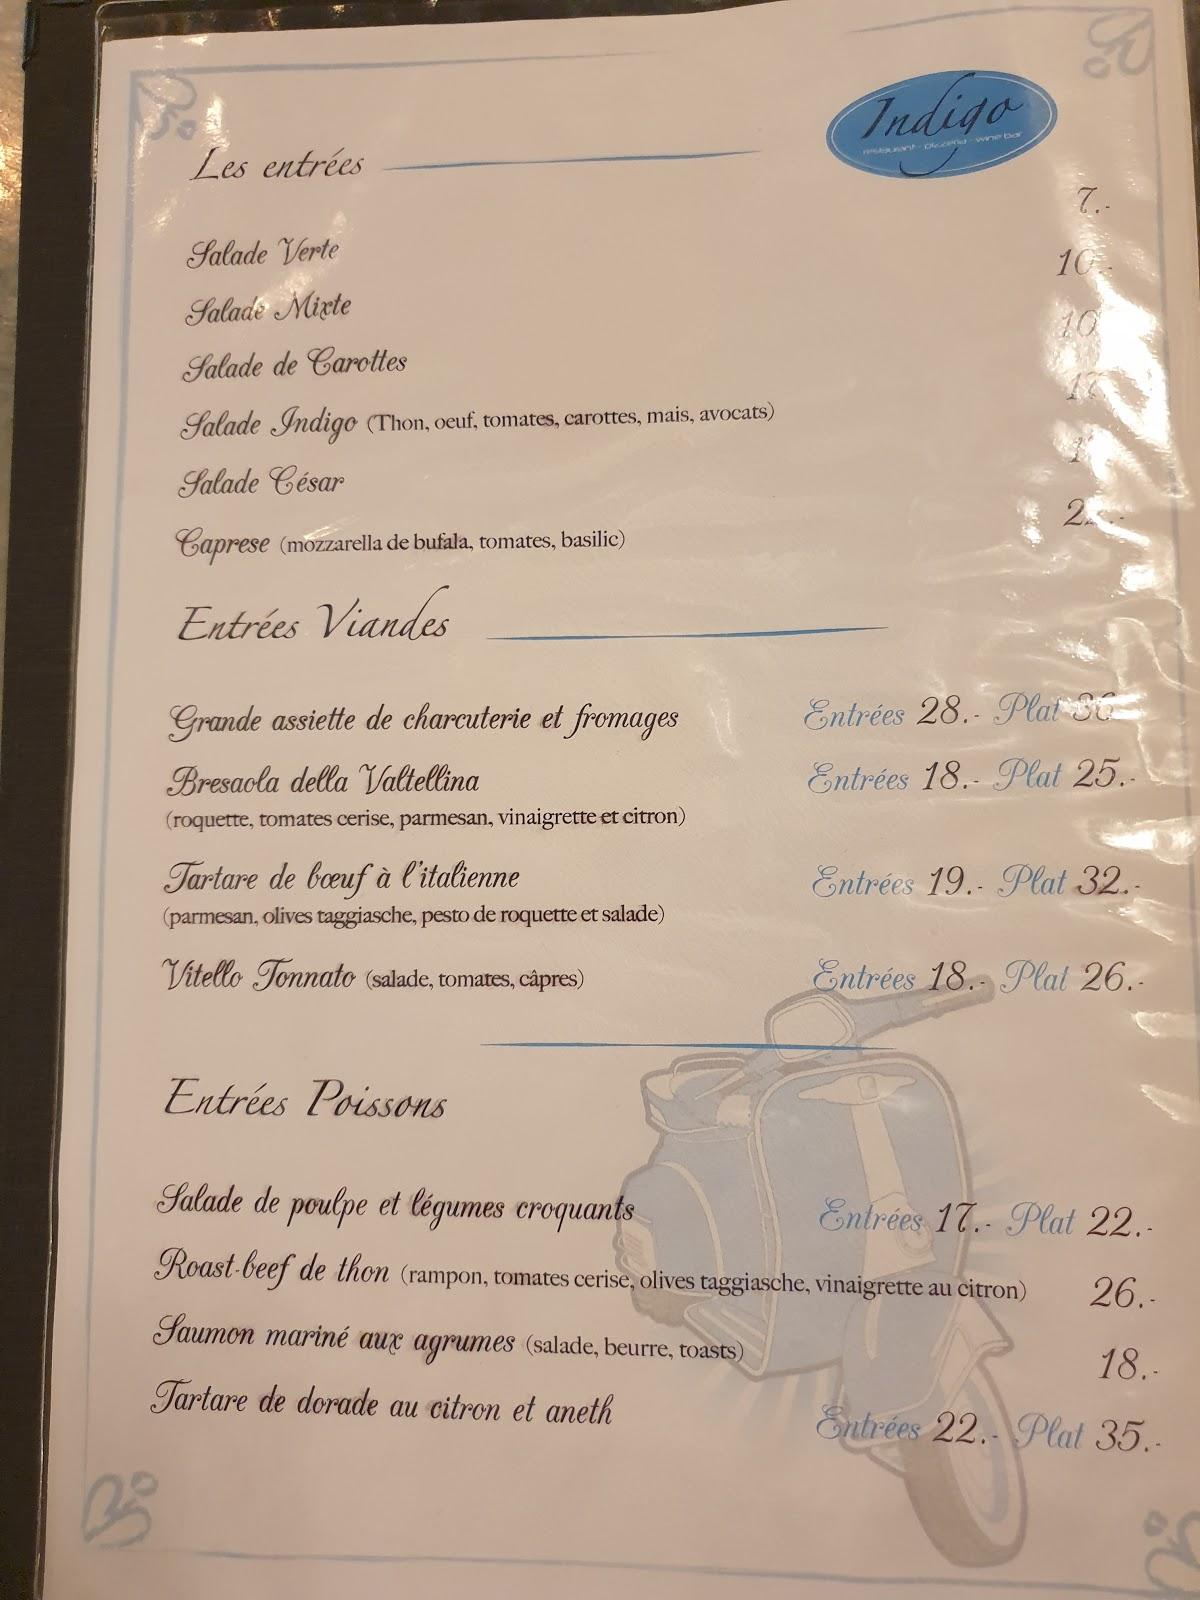 Indigo
restaurant - pizzeria - wine bar
Les entrées
Salade Verte 7.-
Salade Mixte 10.-
Salade de Carottes 10
Salade Indigo (Thon, oeuf, tomates, carottes, mais, avocats)
Salade César
Caprese (mozzarella de bufala, tomates, basilic)
Entrées Viandes
Grande assiette de charcuterie et fromages Entrées 28.- Plat
Bresaola della Valtellina Entrées 18.- Plat 25.-
(roquette, tomates cerise, parmesan, vinaigrette et citron)
Tartare de bœuf à l'italienne Entrées 19.- Plat 32.-
(parmesan, olives taggiasche, pesto de roquette et salade)
Vitello Tonnato (salade, tomates, câpres) Entrées 18.- Plat 26.-
Entrées Poissons
Salade de poulpe et légumes croquants Entrées 17.- Plat 22.-
Roast-beef de thon (rampon, tomates cerise, olives taggiasche, vinaigrette au citron) 26.-
Saumon mariné aux agrumes (salade, beurre, toasts) 18.-
Tartare de dorade au citron et aneth Entrées 22.- Plat 35.-